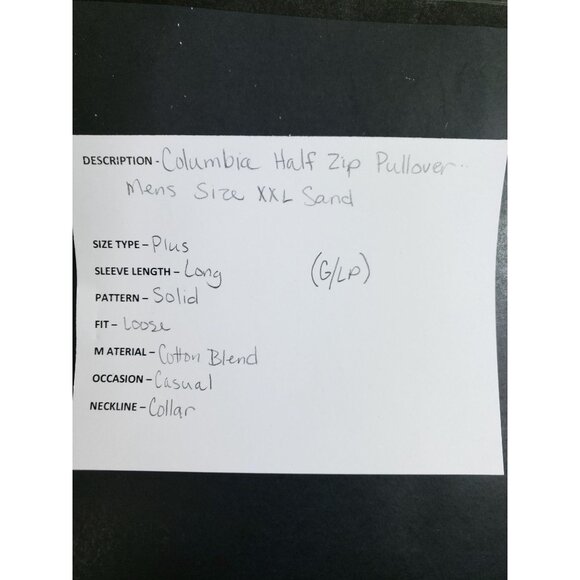 DESCRIPTION - Columbia Half Zip Pullover
Mens Size XXL Sand
SIZE TYPE – Plus
SLEEVE LENGTH – Long (G/LP)
PATTERN – Solid
FIT – Loose
MATERIAL – Cotton Blend
OCCASION – Casual
NECKLINE – Collar